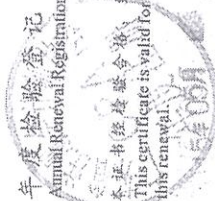 年度检验登记
Annual Renewal Registration
本证书经检验合格,
This certificate is valid for
this renewal.